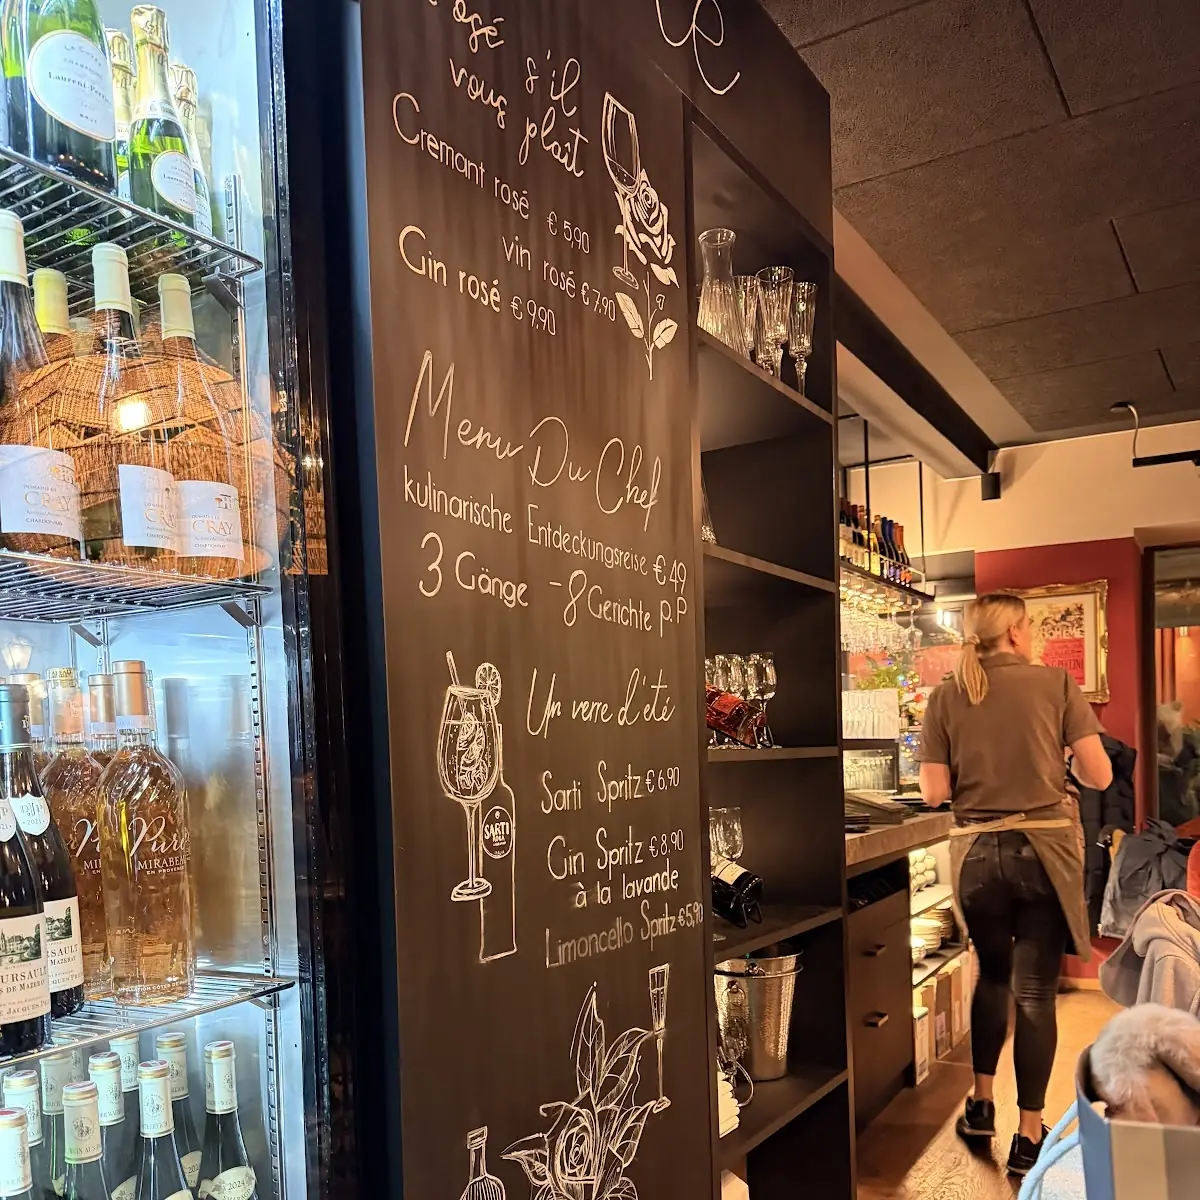 Laurent-Perrier
BRUT
CRAY
CHARDONNAY
CRAY
CHARDONNAY
Pure
MIRABEAU
EN PROVENCE
2021
URSAULT
DE MAZERAY
JACQUES
2024
osé s'il
vous plaît
Cremant rosé € 5,90
vin rosé € 7,90
Gin rosé € 9,90
Menu Du Chef
kulinarische Entdeckungsreise € 49
3 Gänge - 8 Gerichte p.P
Un verre d'été
SARTI
Sarti Spritz € 6,90
Gin Spritz € 8,90
à la lavande
Limoncello Spritz € 5,90
BOHÈME